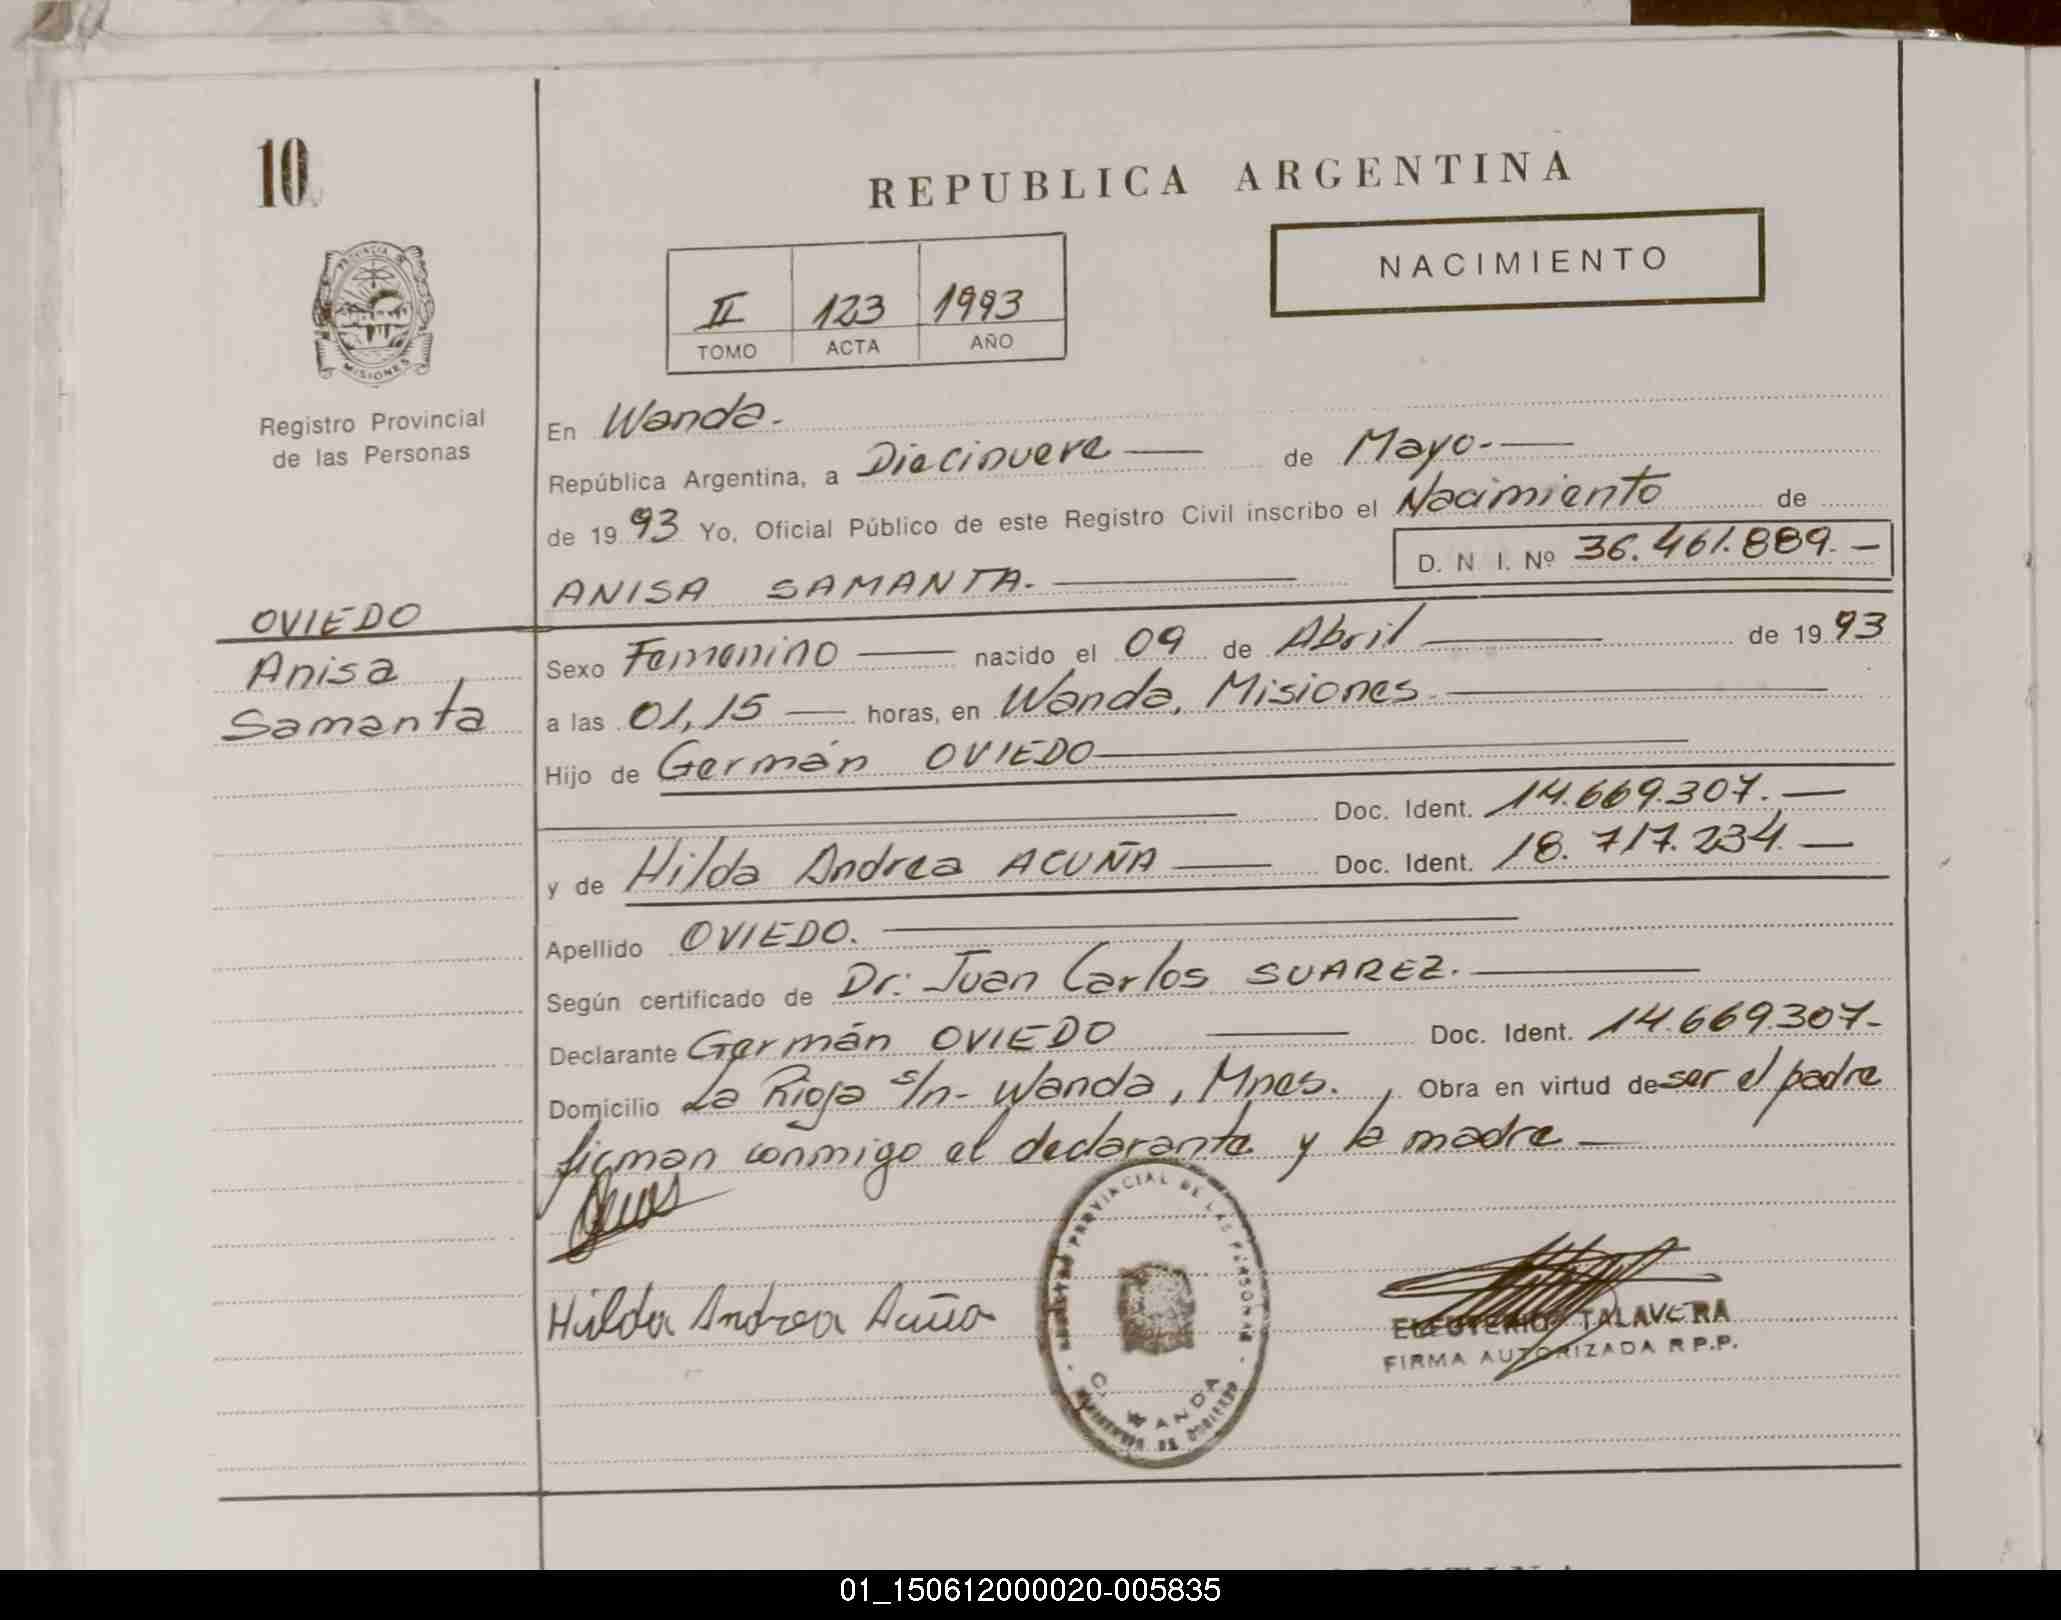 10
PROVINCIA DE
MISIONES
Registro Provincial
de las Personas
OVIEDO
Anisa
Samanta
REPUBLICA ARGENTINA
NACIMIENTO
II 123 1993
TOMO ACTA AÑO
En Wanda.-
República Argentina, a Diecinueve — de Mayo.-—
de 1993 Yo, Oficial Público de este Registro Civil inscribo el Nacimiento de
D. N. I. Nº 36.461.889.—
ANISA SAMANTA.—
Sexo Femenino — nacido el 09 de Abril — de 1993
a las 01,15 — horas, en Wanda, Misiones.—
Hijo de Germán OVIEDO—
— Doc. Ident. 14.669.307.—
y de Hilda Andrea ACUÑA — Doc. Ident. 18.717.234.—
Apellido OVIEDO.—
Según certificado de Dr: Juan Carlos SUAREZ.—
Declarante Germán OVIEDO — Doc. Ident. 14.669.307-
Domicilio La Rioja s/n- Wanda, Mnes. , Obra en virtud de ser el padre
firman conmigo el declarante y la madre—
Hilda Andrea Acuña
REGISTRO PROVINCIAL DE LAS PERSONAS
WANDA
ELEUTERIO TALAVERA
FIRMA AUTORIZADA R P.P.
01_150612000020-005835